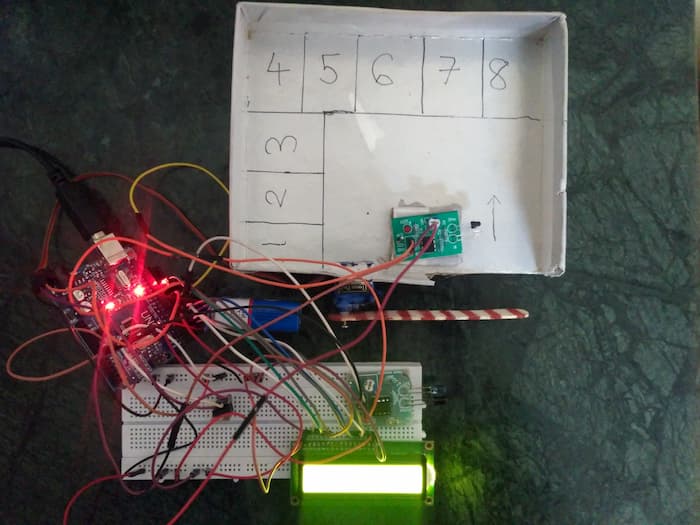 4 5 6 7 8
3
2
1
UN